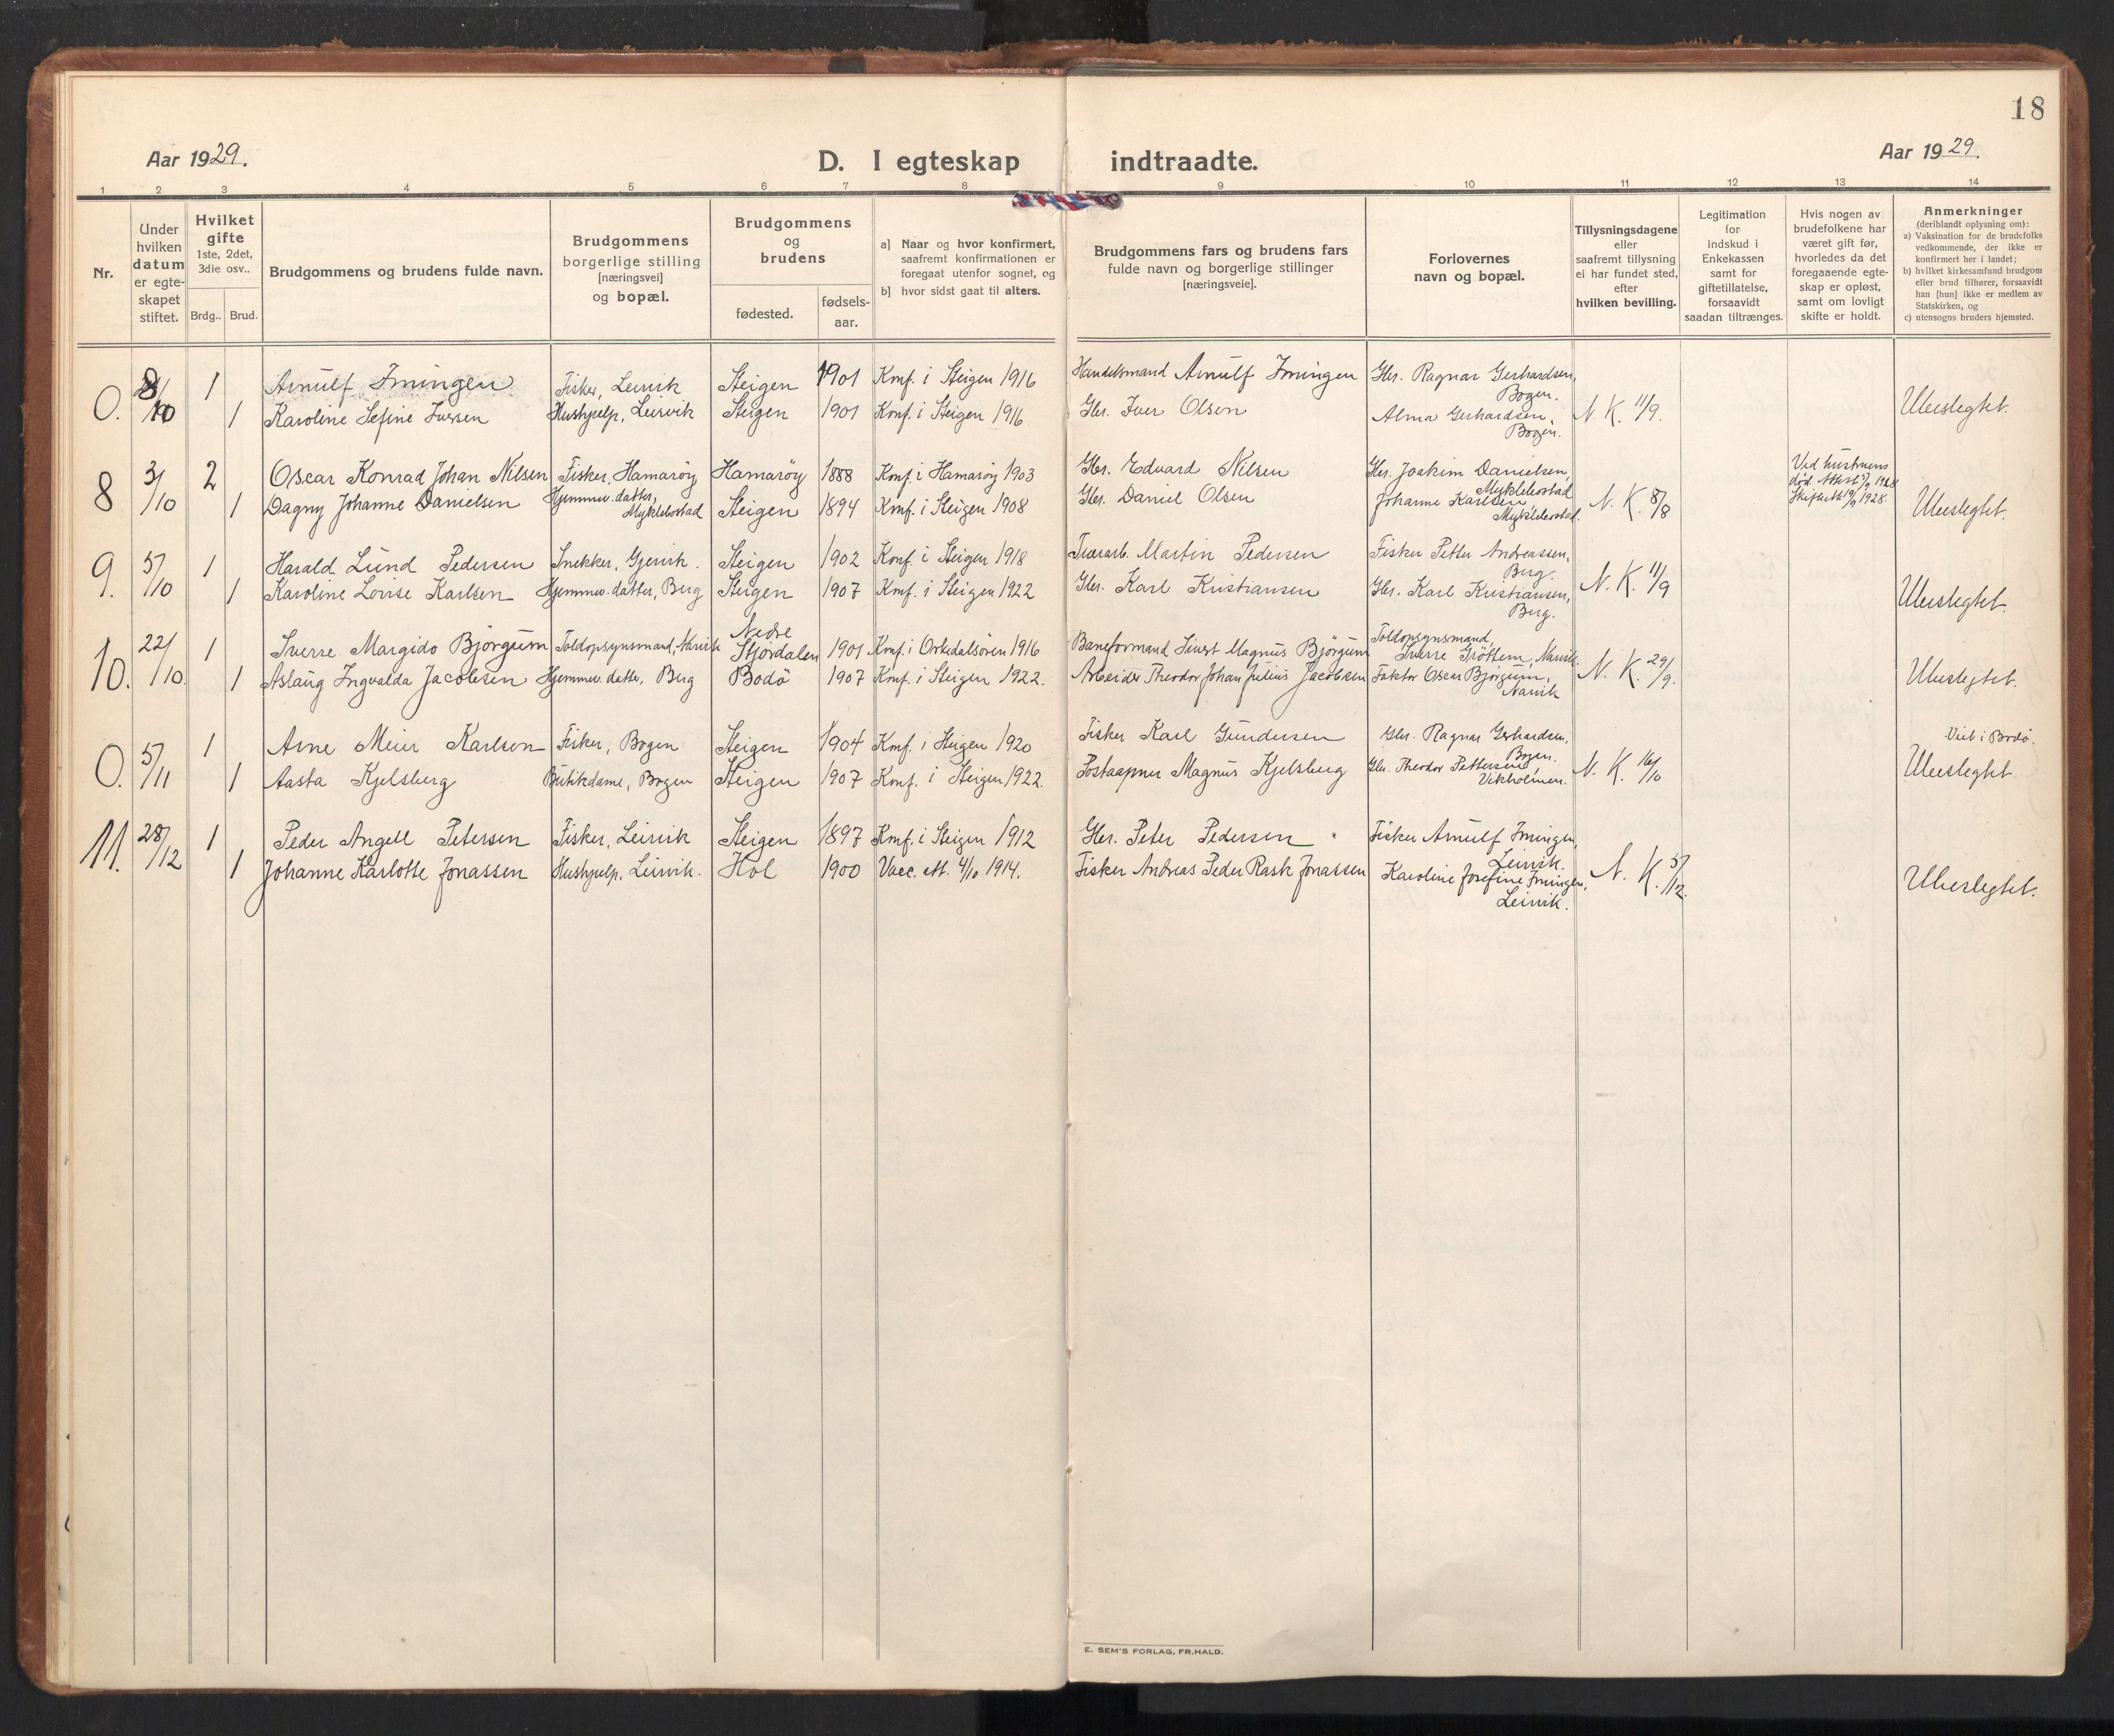 18
Aar 1929.
D. I egteskap indtraadte.
Aar 1929.
1 2 3 4 5 6 7 8 9 10 11 12 13 14
Nr.
Under
hvilken
datum
er egte-
skapet
stiftet.
Hvilket
gifte
1ste, 2det,
3die osv..
Brdg.. Brud.
Brudgommens og brudens fulde navn.
Brudgommens
borgerlige stilling
[næringsvei]
og bopæl.
Brudgommens
og
brudens
fødested.
fødsels-
aar.
a] Naar og hvor konfirmert,
saafremt konfirmationen er
foregaat utenfor sognet, og
b] hvor sidst gaat til alters.
Brudgommens fars og brudens fars
fulde navn og borgerlige stillinger
[næringsveie].
Forlovernes
navn og bopæl.
Tillysningsdagene
eller
saafremt tillysning
ei har fundet sted,
efter
hvilken bevilling.
Legitimation
for
indskud i
Enkekassen
samt for
giftetillatelse,
forsaavidt
saadan tiltrænges.
Hvis nogen av
brudefolkene har
været gift før,
hvorledes da det
foregaaende egte-
skap er opløst,
samt om lovligt
skifte er holdt.
Anmerkninger
(deriblandt oplysning om):
a) Vaksination for de brudefolks
vedkommende, der ikke er
konfirmert her i landet;
b) hvilket kirkesamfund brudgom
eller brud tilhører, forsaavidt
han [hun] ikke er medlem av
Statskirken, og
c) utensogns bruders hjemsted.
O. 8/10 1 Arnulf Imingen Fisker, Leirvik Steigen 1901 Konf. i Steigen 1916 Handelsmand Arnulf Imingen Gbr. Ragnar Gerhardsen,
Bogen.
1 Karoline Sefine Iversen Hushjelp, Leirvik Steigen 1901 Konf. i Steigen 1916 Gbr. Iver Olsen Alma Gerhardsen, N. K. 11/9. Ubeslegtet.
Bogen.
8 3/10 2 Oscar Konrad Johan Nilsen Fisker, Hamarøy Hamarøy 1888 Konf. i Hamarøy 1903 Gbr. Edvard Nilsen Gbr. Joakim Danielsen, Ved hustruens
Myklebostad død. Attest 1928
1 Dagny Johanne Danielsen Hjemmev. datter, Steigen 1894 Konf. i Steigen 1908 Gbr. Daniel Olsen Johanne Karlsen N. K. 8/8 Skifteatt. 1928. Ubeslegtet.
Myklebostad Myklebostad.
9. 5/10 1 Harald Lund Pedersen Snekker, Gjervik. Steigen 1902 Konf. i Steigen 1918 Martin Pedersen Fisker Petter Andreassen,
Berg.
1 Karoline Lovise Karlsen Hjemmev. datter, Berg Steigen 1907 Konf. i Steigen 1922 Gbr. Karl Kristiansen Gbr. Karl Kristiansen, N. K. 11/9 Ubeslegtet.
Berg.
10. 22/10. 1 Sverre Margido Bjørgum Toldopsynsmand, Narvik Nedre
Stjørdalen 1901 Konf. i Orkedalsøren 1916 Baneformand Sivert Magnus Bjørgum Toldopsynsmand,
Sverre Grøttem, Narvik.
1 Aslaug Ingvalda Jacobsen Hjemmev. datter, Berg Bodø 1907 Konf. i Steigen 1922. Arbeider Theodor Johan Julius Jacobsen Faktor Oscar Bjørgum, N. K. 29/9. Ubeslegtet.
Narvik
O. 5/11 1 Arne Meier Karlsen Fisker, Bogen Steigen 1904 Konf. i Steigen 1920 Fisker Karl Gundersen Gbr. Ragnar Gerhardsen, Viet i Bodø.
Bogen.
1 Aasta Kjelsberg Butikdame, Bogen Steigen 1907 Konf. i Steigen 1922. Postaapner Magnus Kjelsberg Gbr. Theodor Pettersen N. K. 16/10 Ubeslegtet
Vikholmen.
11. 28/12 1 Peder Angell Petersen Fisker, Leirvik Steigen 1897 Konf. i Steigen 1912 Gbr. Peter Pedersen Fisker Arnulf Imingen,
Leirvik.
1 Johanne Karlotte Jonassen Hushjelp, Leirvik. Hol 1900 Vacc. att. 4/10 1914. Fisker Andreas Peder Rask Jonassen Karoline Josefine Imingen, N. K. 5/12. Ubeslegtet.
Leirvik.
E. SEM'S FORLAG, FR.HALD.